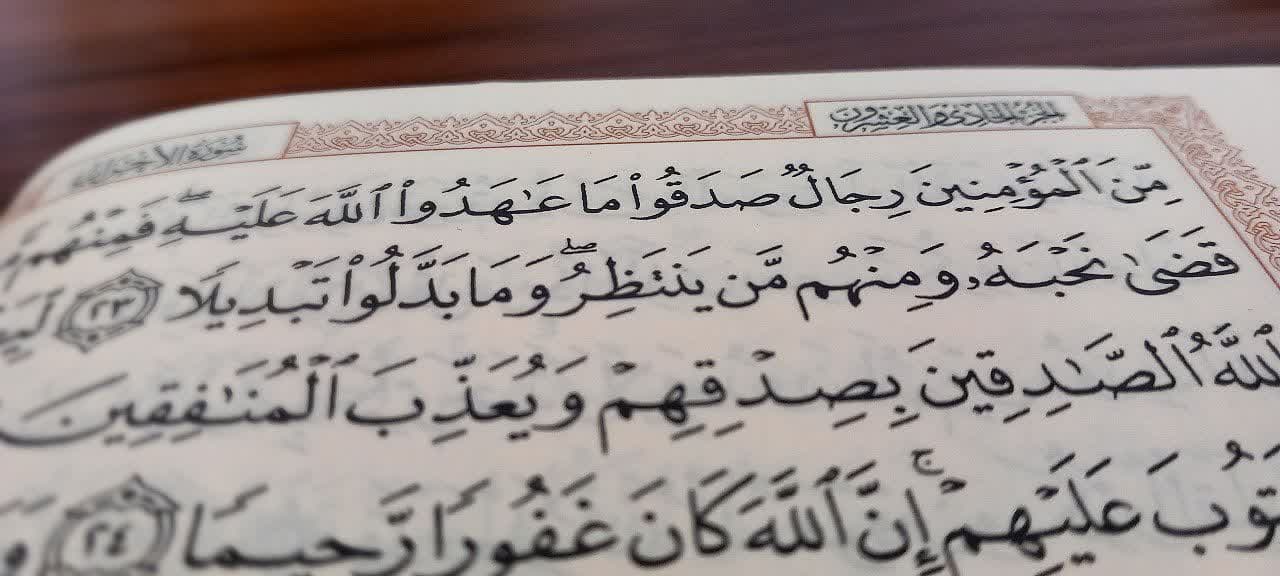 الجزء الحادي والعشرون
سورة الأحزاب
مِّنَ ٱلْمُؤْمِنِينَ رِجَالٌ صَدَقُوا۟ مَا عَـٰهَدُوا۟ ٱللَّهَ عَلَيْهِ ۖ فَمِنْهُم
قَضَىٰ نَحْبَهُۥ وَمِنْهُم مَّن يَنتَظِرُ ۖ وَمَا بَدَّلُوا۟ تَبْدِيلًا ٢٣
ٱللَّهُ ٱلصَّـٰدِقِينَ بِصِدْقِهِمْ وَيُعَذِّبَ ٱلْمُنَـٰفِقِينَ
تُوبَ عَلَيْهِمْ ۚ إِنَّ ٱللَّهَ كَانَ غَفُورًا رَّحِيمًا ٢٤